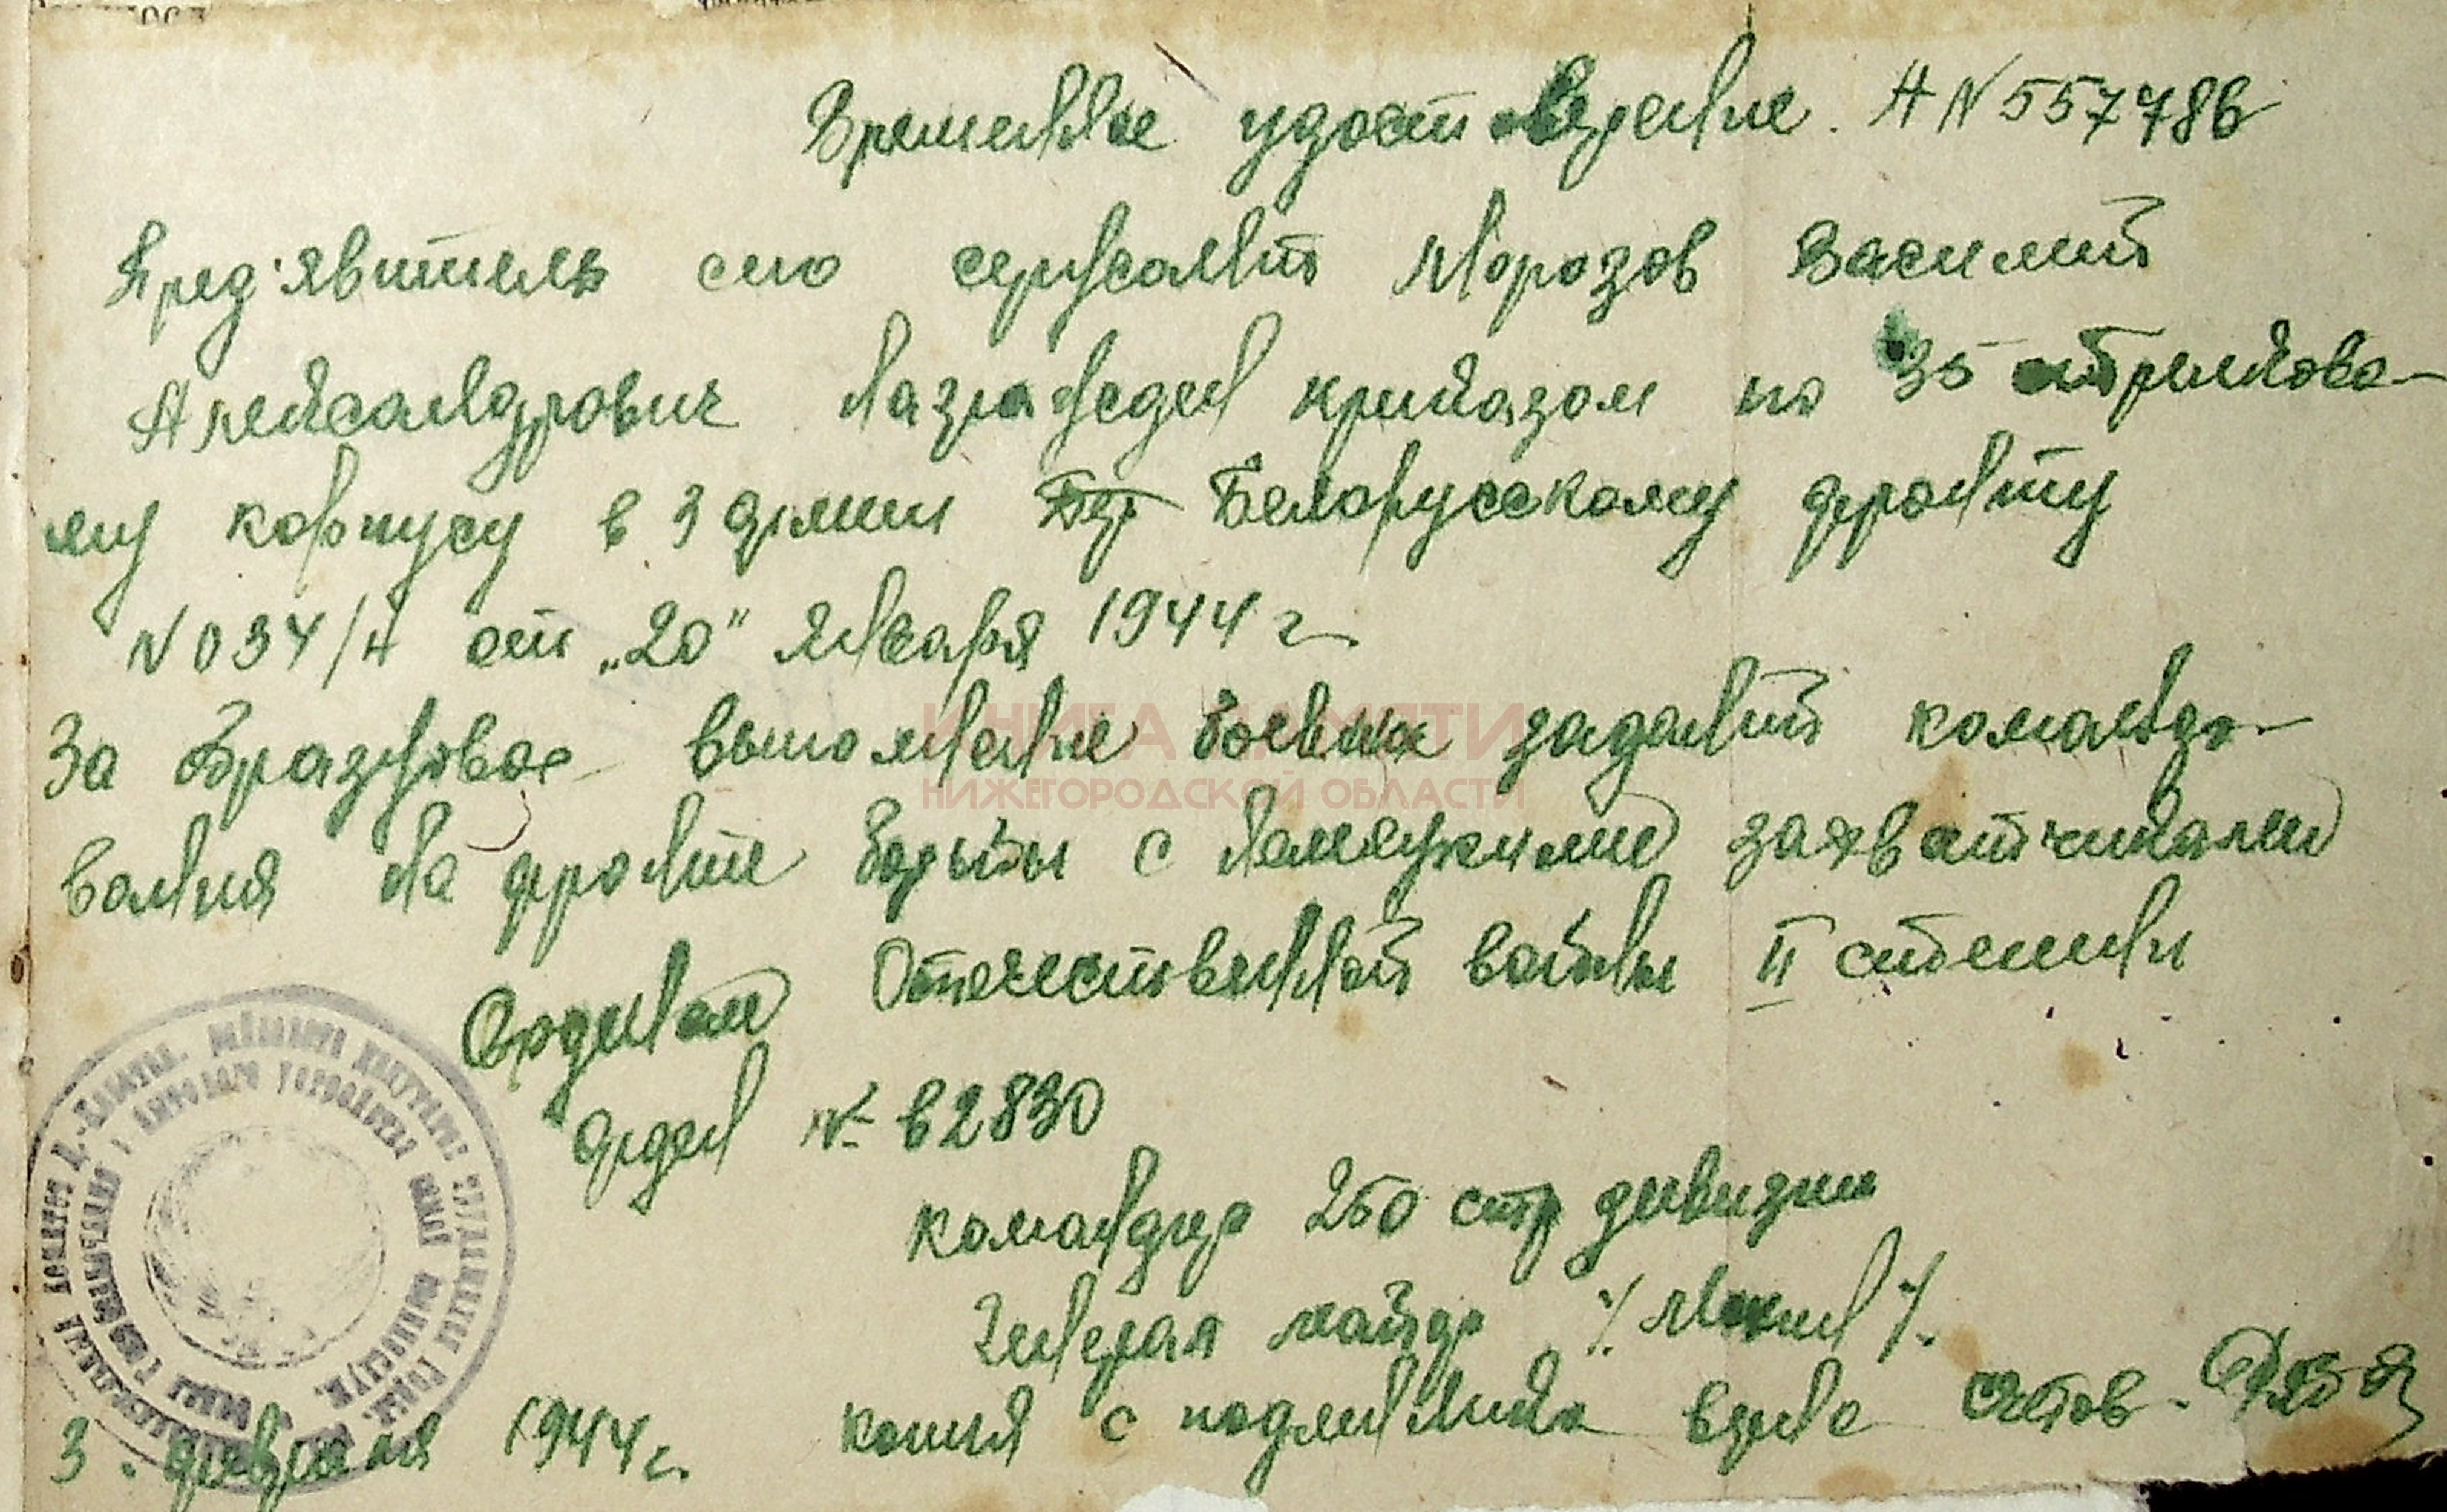 Временное удостоверение. А N 557786
Пред'явитель сего сержант Морозов Василий
Александрович награжден приказом по 35 стрелково-
му корпусу в 3 армии Белорусскому фронту
N 034/н от „20" января 1944 г
За образцовое выполнение боевых заданий командо-
вания на фронте борьбы с немецкими захватчиками
Орденом Отечественной войны II степени
орден № 62830
командир 250 стр дивизии
Генерал майор /. Мохин /.
3. февраля 1944 г. копия с подлинника верна счетов.
КНИГА ПАМЯТИ
НИЖЕГОРОДСКОЙ ОБЛАСТИ